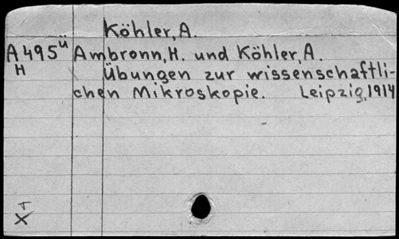 Köhler, A.
A495ü Ambronn, H. und Köhler, A.
H Übungen zur wissenschaftli-
chen Mikroskopie. Leipzig, 1914
X T